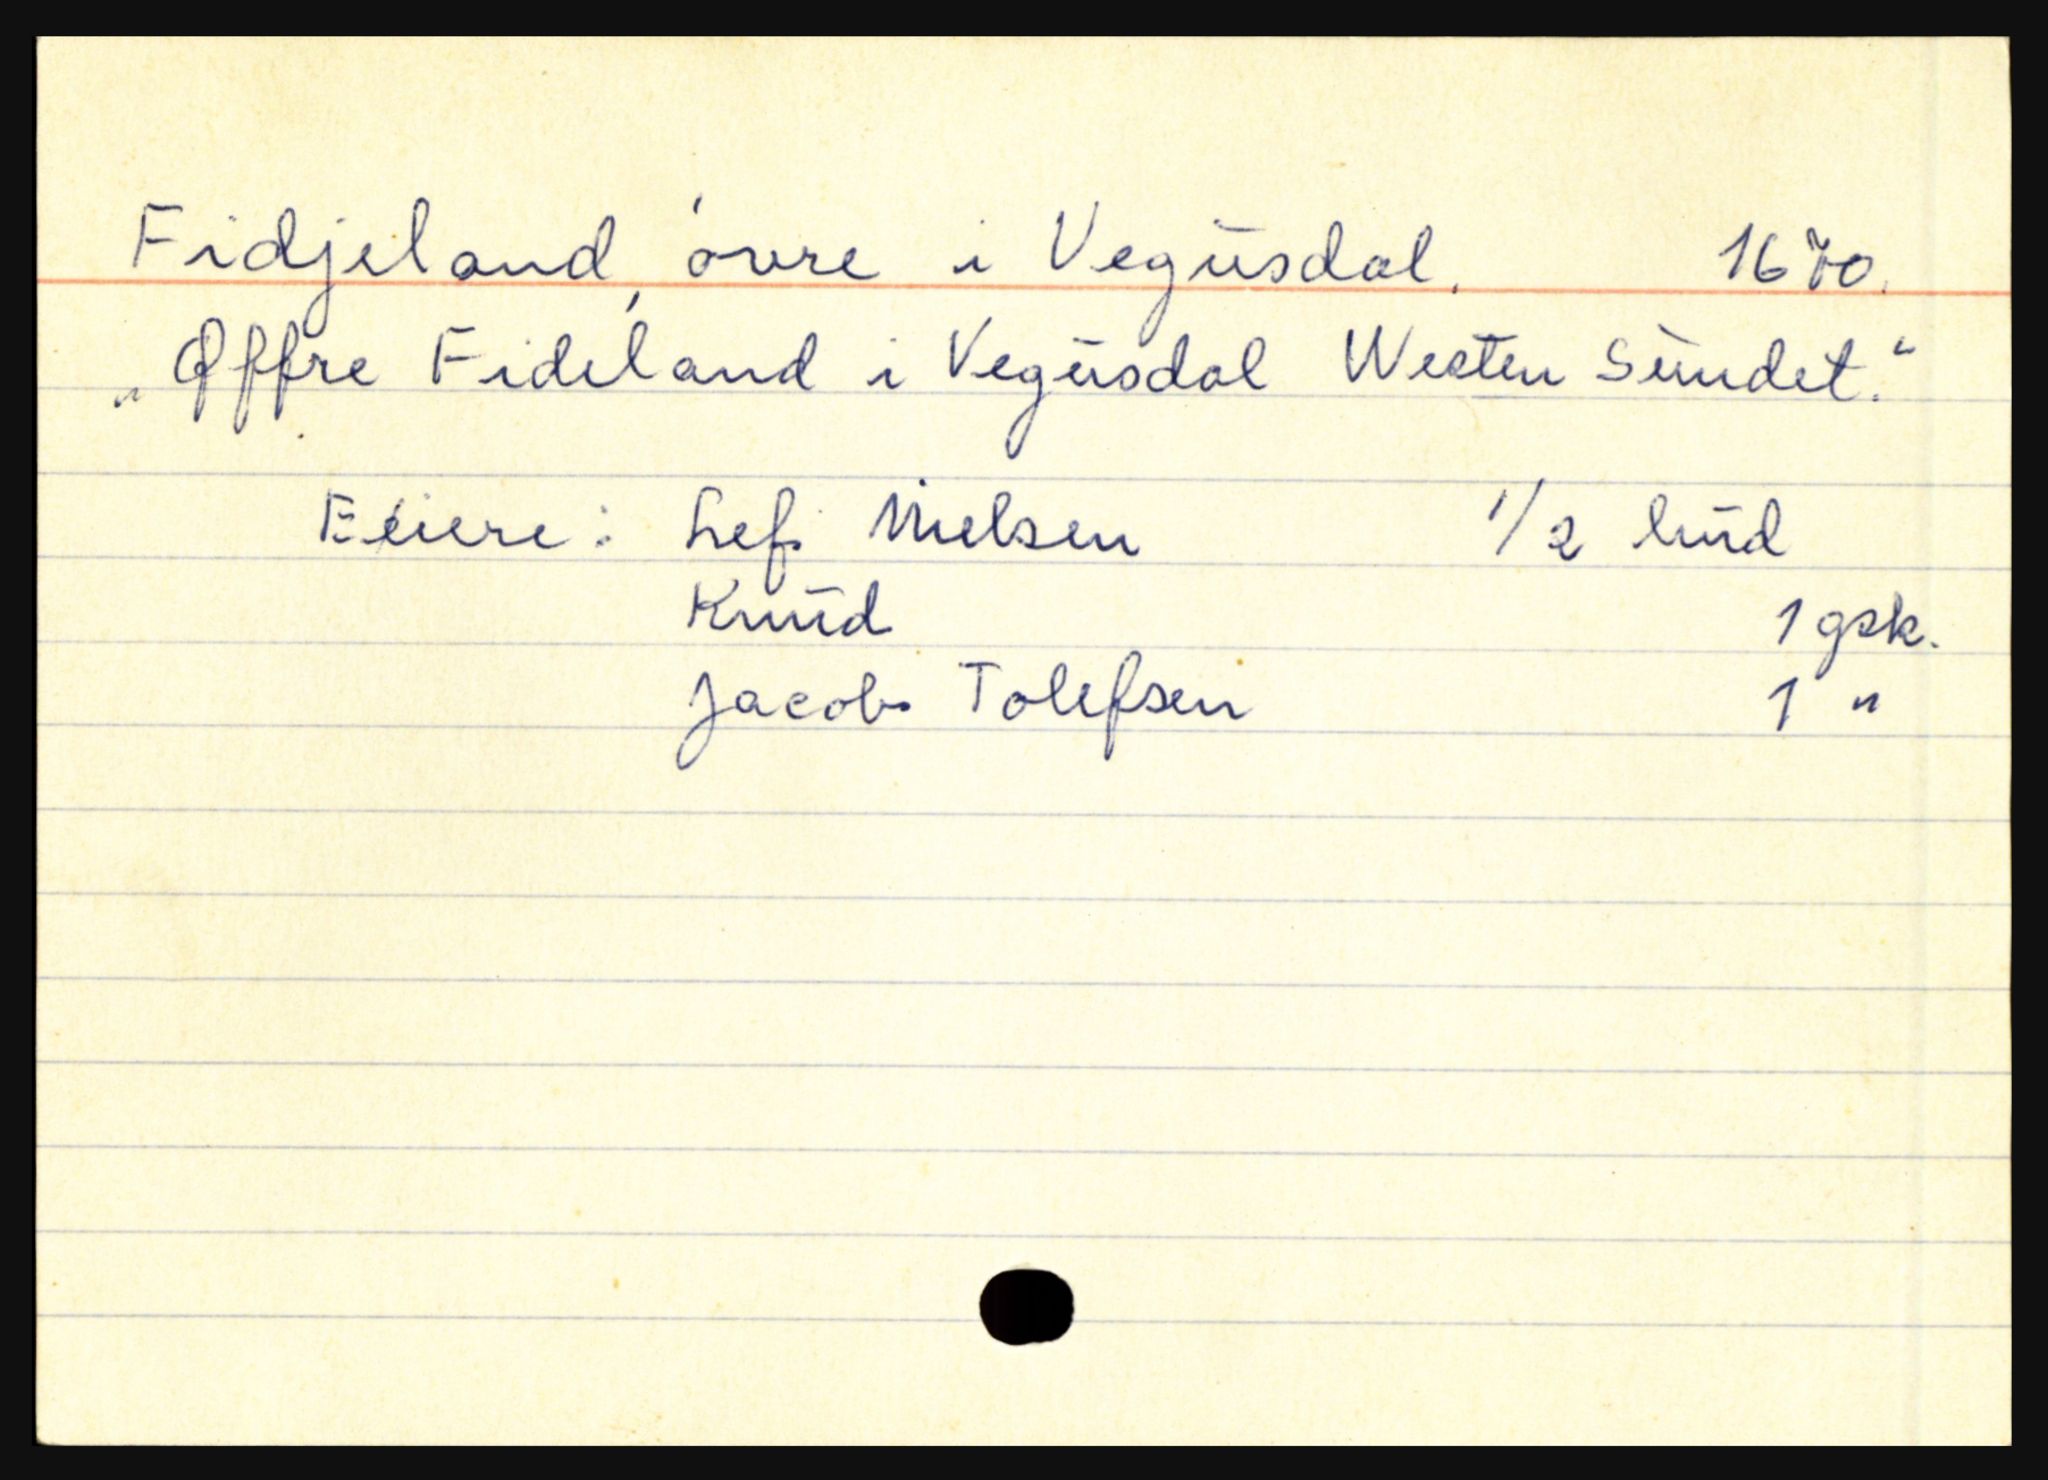 Fidjeland, øvre i Vegusdal. 1670.
„Øffre Fideland i Vegusdal Westen Sundet.“
Eiere: Lef Nielsen 1/2 hud
Knud 1 gsk.
Jacob Tolefsen 1 "